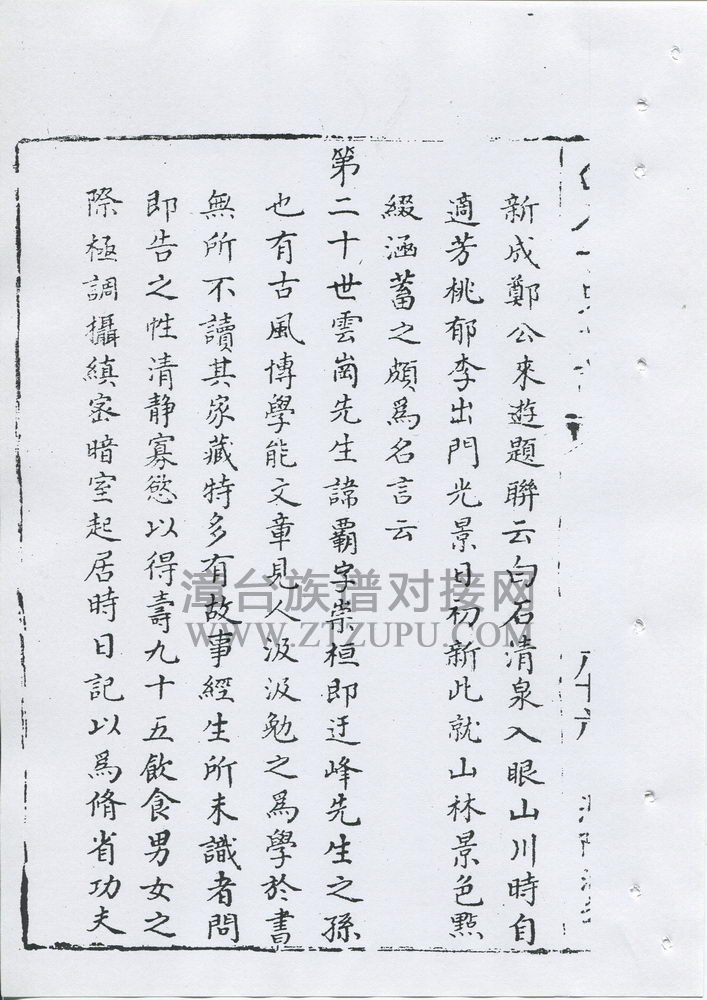 新成鄭公來遊題聯云白石清泉入眼山川時自
適芳桃郁李出門光景日初新此就山林景色點
綴涵蓄之頗為名言云
第二十世雲崗先生諱霸字崇桓即迂峰先生之孫
也有古風博學能文章見人汲汲勉之為學於書
無所不讀其家藏特多有故事經生所未識者問
即告之性清静寡慾以得壽九十五飲食男女之
際極調攝縝密暗室起居時日記以為脩省功夫
漳台族谱对接网
WWW.ZTZUPU.COM